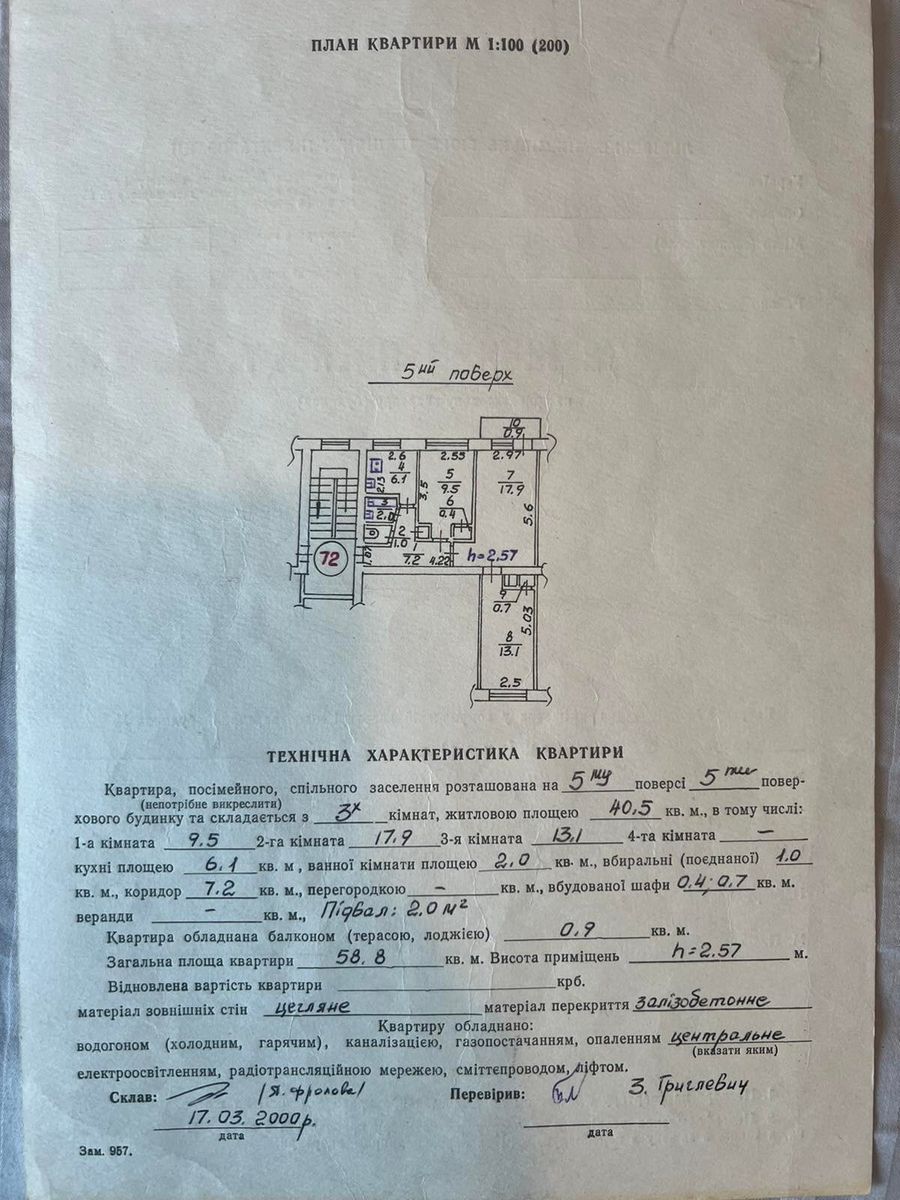 ПЛАН КВАРТИРИ М 1:100 (200)
5ий поверх
10
0.9
2.6
2.55
2.97
4
6.1
5
9.5
7
17.9
2.13
3.5
6
0.4
5.6
3
2.0
2
1.0
1
7.2
4.22
h=2.57
1.07
72
9
0.7
5.03
8
13.1
2.5
ТЕХНІЧНА ХАРАКТЕРИСТИКА КВАРТИРИ
Квартира, посімейного, спільного заселення розташована на 5му поверсі 5ти повер-
(непотрібне викреслити)
хового будинку та складається з 3х кімнат, житловою площею 40,5 кв. м., в тому числі:
1-а кімната 9.5 2-га кімната 17.9 3-я кімната 13,1 4-та кімната —
кухні площею 6,1 кв. м , ванної кімнати площею 2,0 кв. м., вбиральні (поєднаної) 1.0
кв. м., коридор 7.2 кв. м., перегородкою – кв. м., вбудованої шафи 0,4; 0,7 кв. м.
веранди – кв. м., Підвал: 2.0 м²
Квартира обладнана балконом (терасою, лоджією) 0.9 кв. м.
Загальна площа квартири 58,8 кв. м. Висота приміщень h=2.57 м.
Відновлена вартість квартири крб.
матеріал зовнішніх стін цегляне матеріал перекриття залізобетонне
Квартиру обладнано:
водогоном (холодним, гарячим), каналізацією, газопостачанням, опаленням центральне
(вказати яким)
електроосвітленням, радіотрансляційною мережею, сміттєпроводом, ліфтом.
Склав: /Я. Фролова/ Перевірив: З. Григлевич
17.03.2000р.
дата дата
Зам. 957.